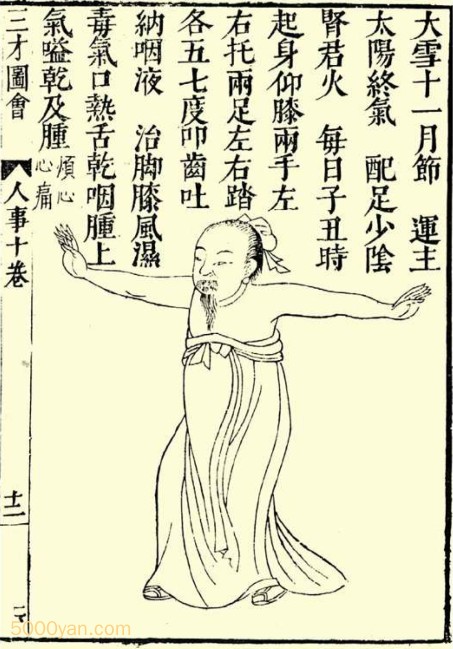 大雪十一月節 運主
太陽終氣 配足少陰
腎君火 每日子丑時
起身仰膝兩手左
右托兩足左右踏
各五七度叩齒吐
納咽液 治脚膝風濕
毒氣口熱舌乾咽腫上
氣嗌乾及腫
煩心
心痛
三才圖會 人事十卷 十二
5000yan.com